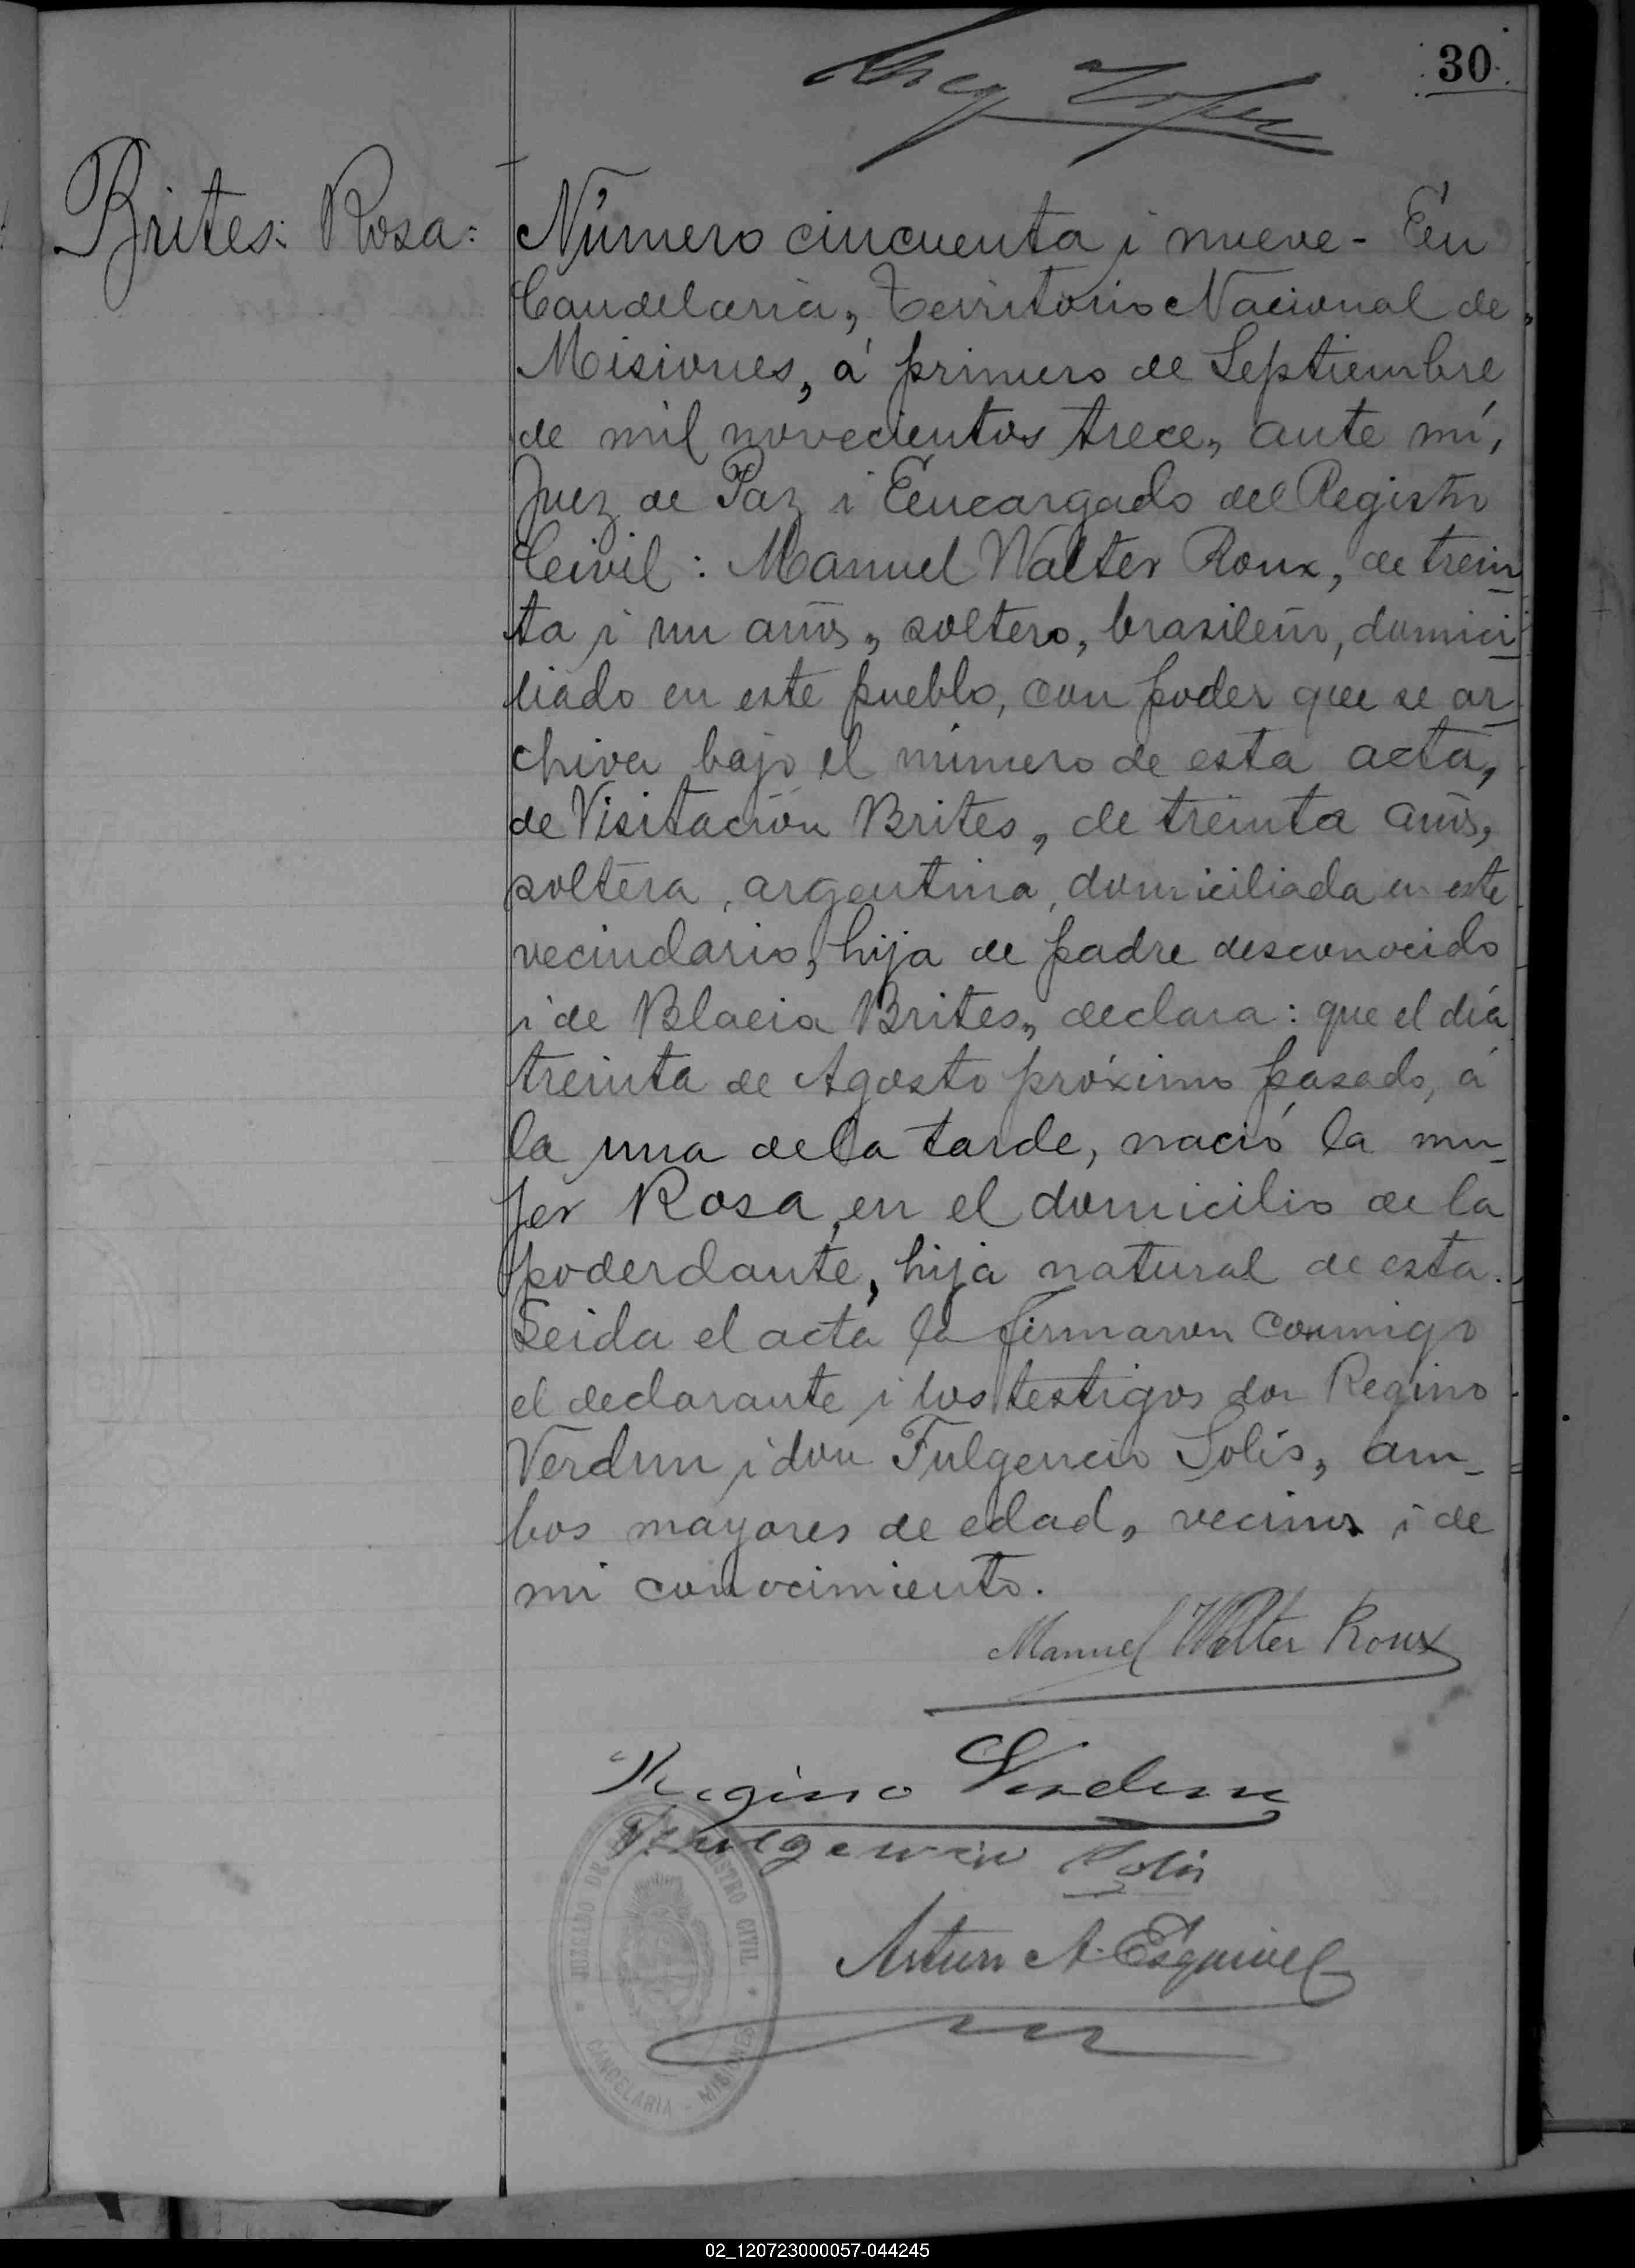 30
Brites: Rosa:
Número cincuenta i nueve - En
Candelaria, Territorio Nacional de
Misiones, á primero de Septiembre
de mil novecientos trece, ante mí,
Juez de Paz i Encargado del Registro
Civil: Manuel Walter Roux, de trein
ta i un años, soltero, brasileño, domici
liado en este pueblo, con poder que se ar
chiva bajo el número de esta acta,
de Visitación Brites, de treinta años,
soltera, argentina, domiciliada en este
vecindario, hija de padre desconocido
i de Blacia Brites, declara: que el día
treinta de Agosto próximo pasado, á
la una de la tarde, nació la mu_
jer Rosa, en el domicilio de la
poderdante, hija natural de esta.
Leida el acta la firmaron conmigo
el declarante i los testigos don Regino
Verdun i don Fulgencio Solis, am_
bos mayores de edad, vecinos i de
mi conocimiento.
Manuel Walter Roux
Regino Verdun
Fulgencio Solis
Arturo A. Esquivel
JUZGADO DE REGISTRO CIVIL
CANDELARIA - MISIONES
02_120723000057-044245